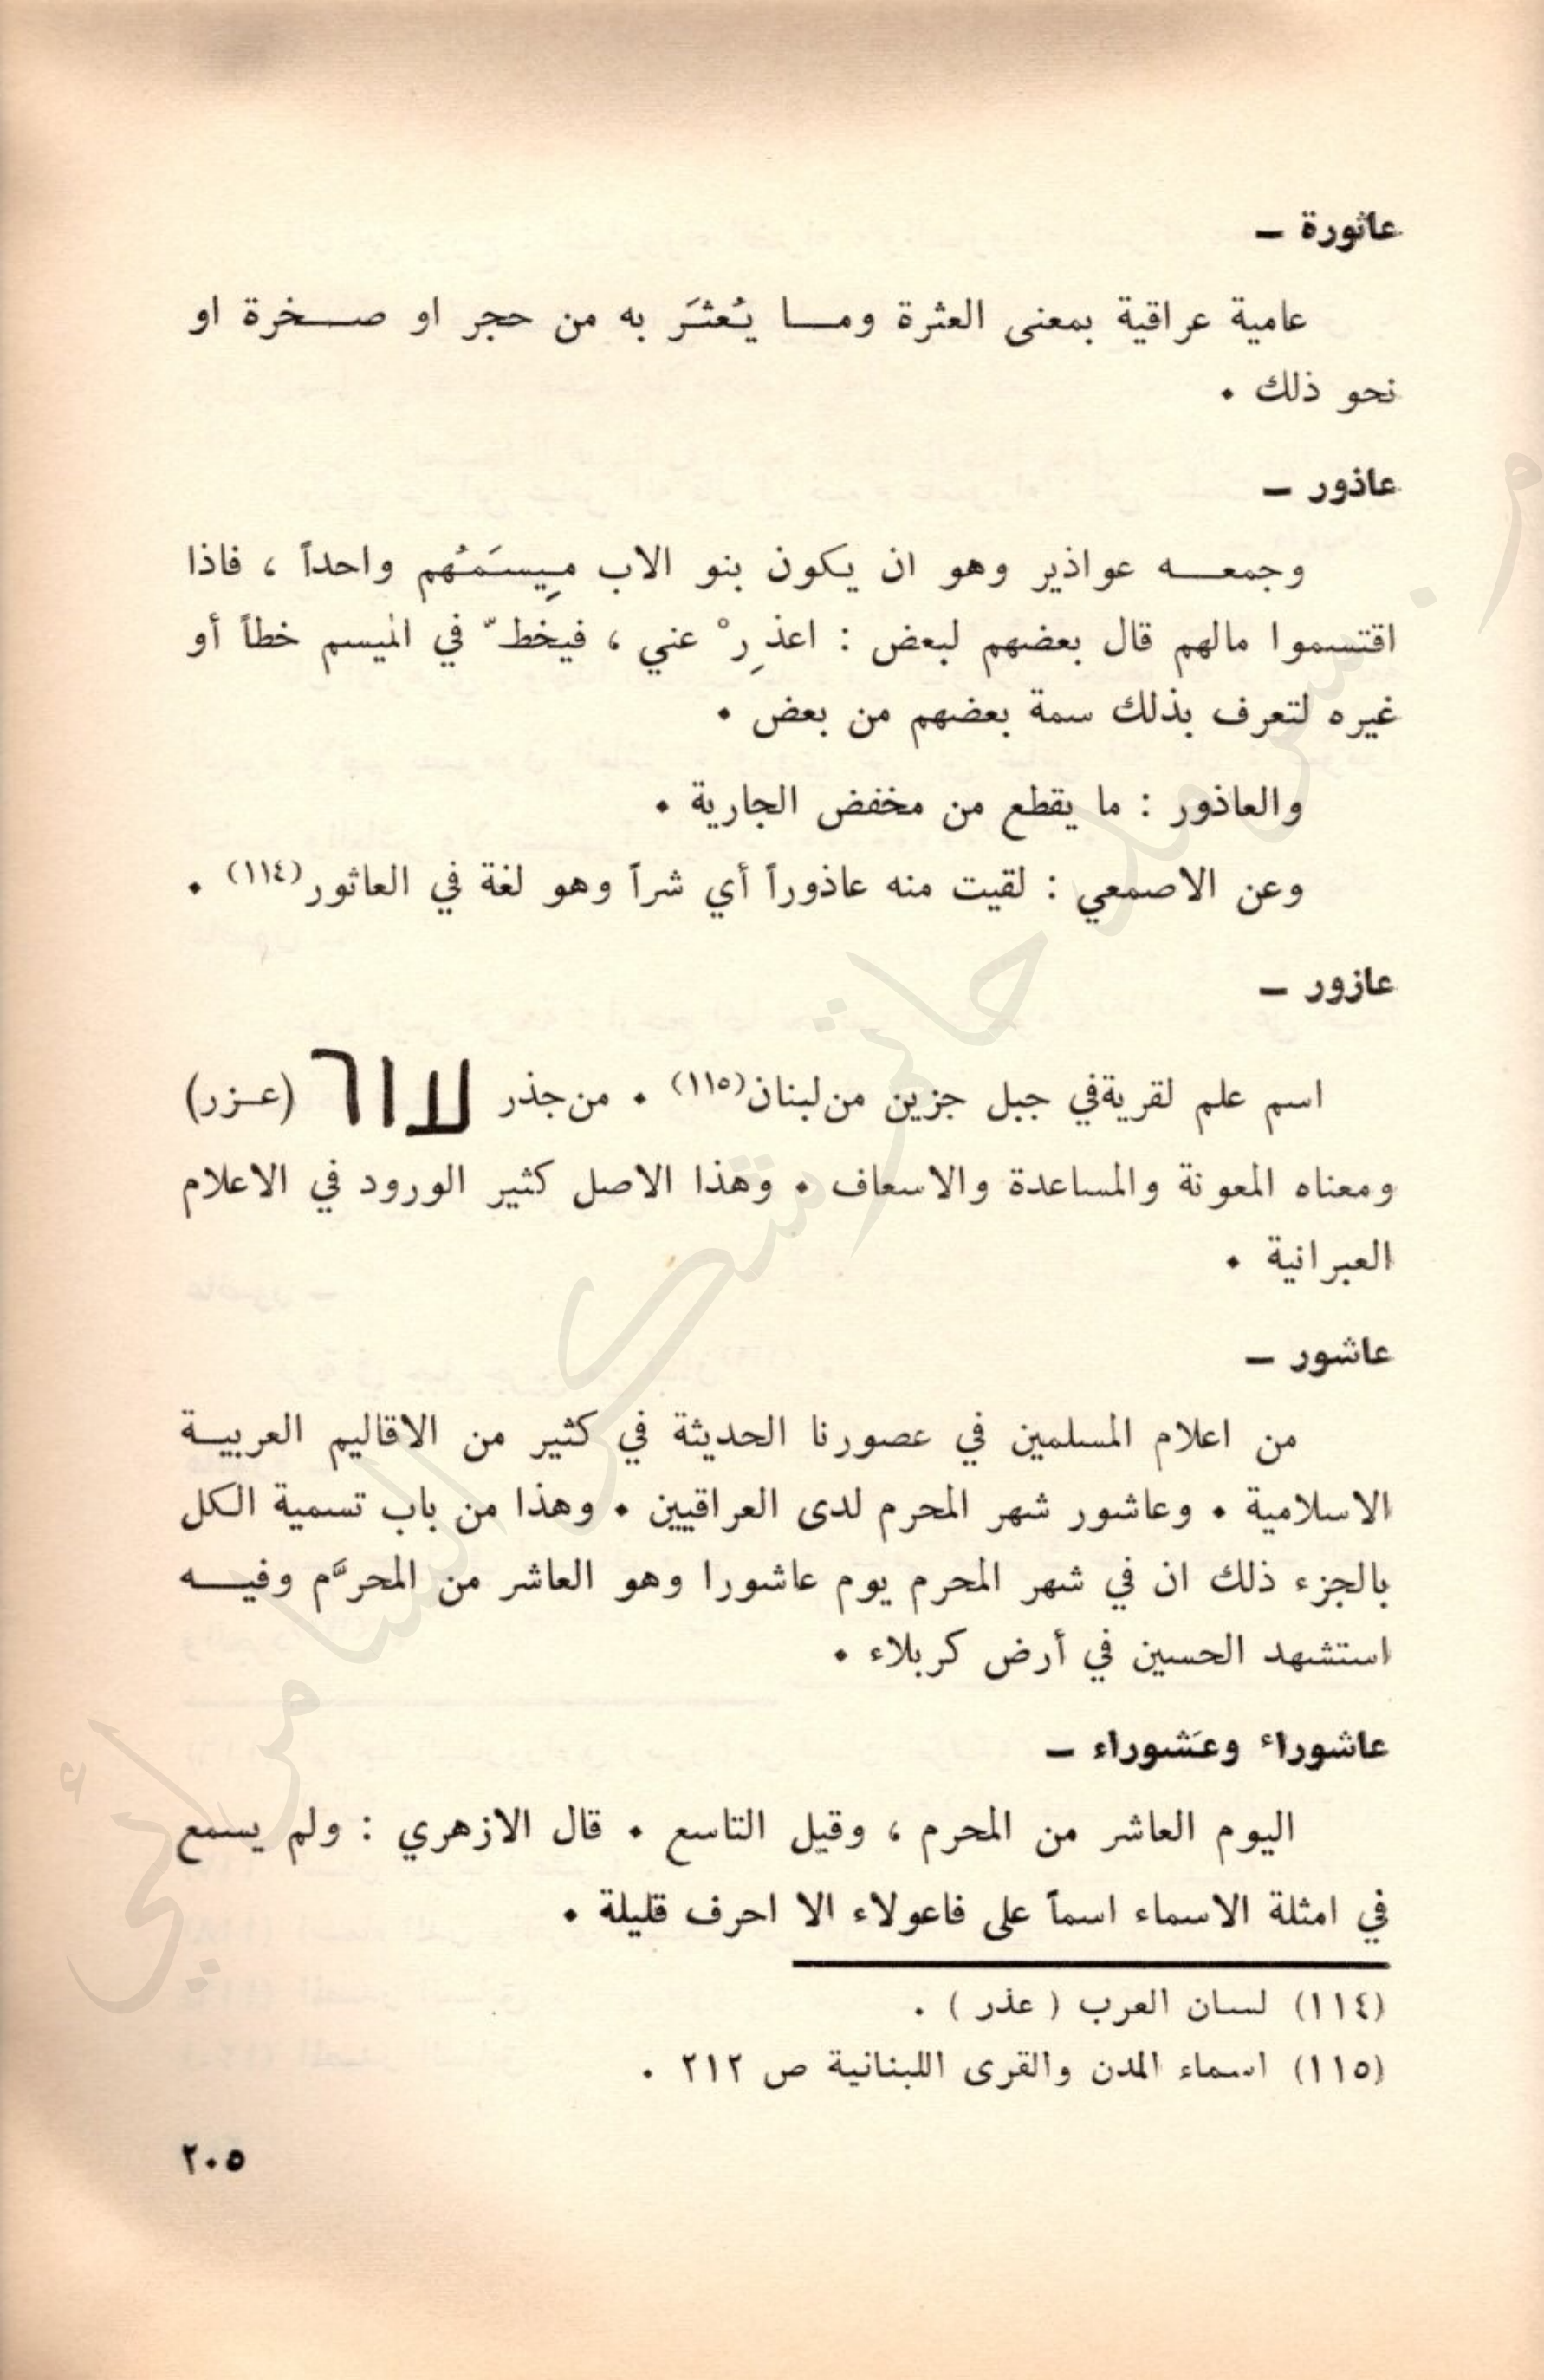 عاثورة –
عامية عراقية بمعنى العثرة ومـــا يُعثَر به من حجر او صـــخرة او
نحو ذلك •
عاذور –
وجمعـــه عواذير وهو ان يكون بنو الاب مِيسَمُهم واحداً ، فاذا
اقتسموا مالهم قال بعضهم لبعض : اعذِرْ عني ، فيخطّ في الميسم خطاً أو
غيره لتعرف بذلك سمة بعضهم من بعض •
والعاذور : ما يقطع من مخفض الجارية •
وعن الاصمعي : لقيت منه عاذوراً أي شراً وهو لغة في العاثور(١١٤) •
عازور –
اسم علم لقرية في جبل جزين من لبنان(١١٥) • من جذر עזר (عـزر)
ومعناه المعونة والمساعدة والاسعاف • وهذا الاصل كثير الورود في الاعلام
العبرانية •
عاشور –
من اعلام المسلمين في عصورنا الحديثة في كثير من الاقاليم العربيــة
الاسلامية • وعاشور شهر المحرم لدى العراقيين • وهذا من باب تسمية الكل
بالجزء ذلك ان في شهر المحرم يوم عاشورا وهو العاشر من المحرَّم وفيـــه
استشهد الحسين في أرض كربلاء •
عاشوراء وعَشوراء –
اليوم العاشر من المحرم ، وقيل التاسع • قال الازهري : ولم يسمع
في امثلة الاسماء اسماً على فاعولاء الا احرف قليلة •
(١١٤) لسان العرب ( عذر ) .
(١١٥) اسماء المدن والقرى اللبنانية ص ٢١٢ .
٢٠٥